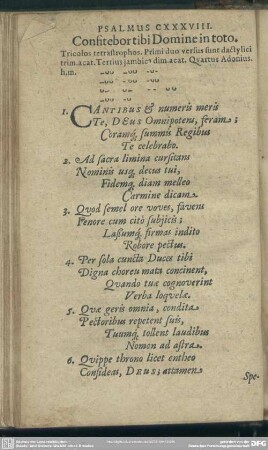 PSALMUS CXXXVIII.
Confitebor tibi Domine in toto.
Tricolos tetrastrophos. Primi duo versus sunt dactylici
trim. acat. Tertius jambic9 dim. acat. Quartus Adonius.
1. CAntibus & numeris meris
Te, DEus Omnipotens, feram;
Coramq́; summis Regibus
Te celebrabo.
2. Ad sacra limina cursitans
Nominis usq; decus tui,
Fidemq́; diam melleo
Carmine dicam.
3. Quod semel ore voves, favens
Fenore cum cito subjicis;
Lassumq́; firmas indito
Robore pectus.
4. Per sola cuncta Duces tibi
Digna choreumata concinent,
Quando tuæ cognoverint
Verba loquelæ.
5. Quæ geris omnia, condita
Pectoribus repetent suis,
Tuumq́; tollent laudibus
Nomen ad astra.
6. Quippe throno licet entheo
Consideas, DEUS; attamen
Spe-